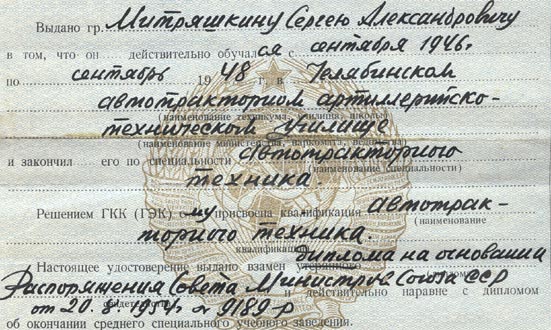 Выдано гр. Митряшкину Сергею Александровичу
в том, что он действительно обучался с сентября 1946 г.
по сентябрь 1948 г. в Челябинском
автотракторном артиллерийско-
(наименование техникума, училища, школы)
техническом училище
(наименование министерства, наркомата, ведомства)
и закончил его по специальности автотракторного
(наименование специальности)
техника.
Решением ГКК (ГЭК) ему присвоена квалификация автотрак-
(наименование
торного техника.
квалификации)
диплома на основании
Настоящее удостоверение выдано взамен утерянного
Распоряжения Совета Министров Союза ССР
и действительно наравне с дипломом
от 20.8.1954 г. № 9189-р
об окончании среднего специального учебного заведения.